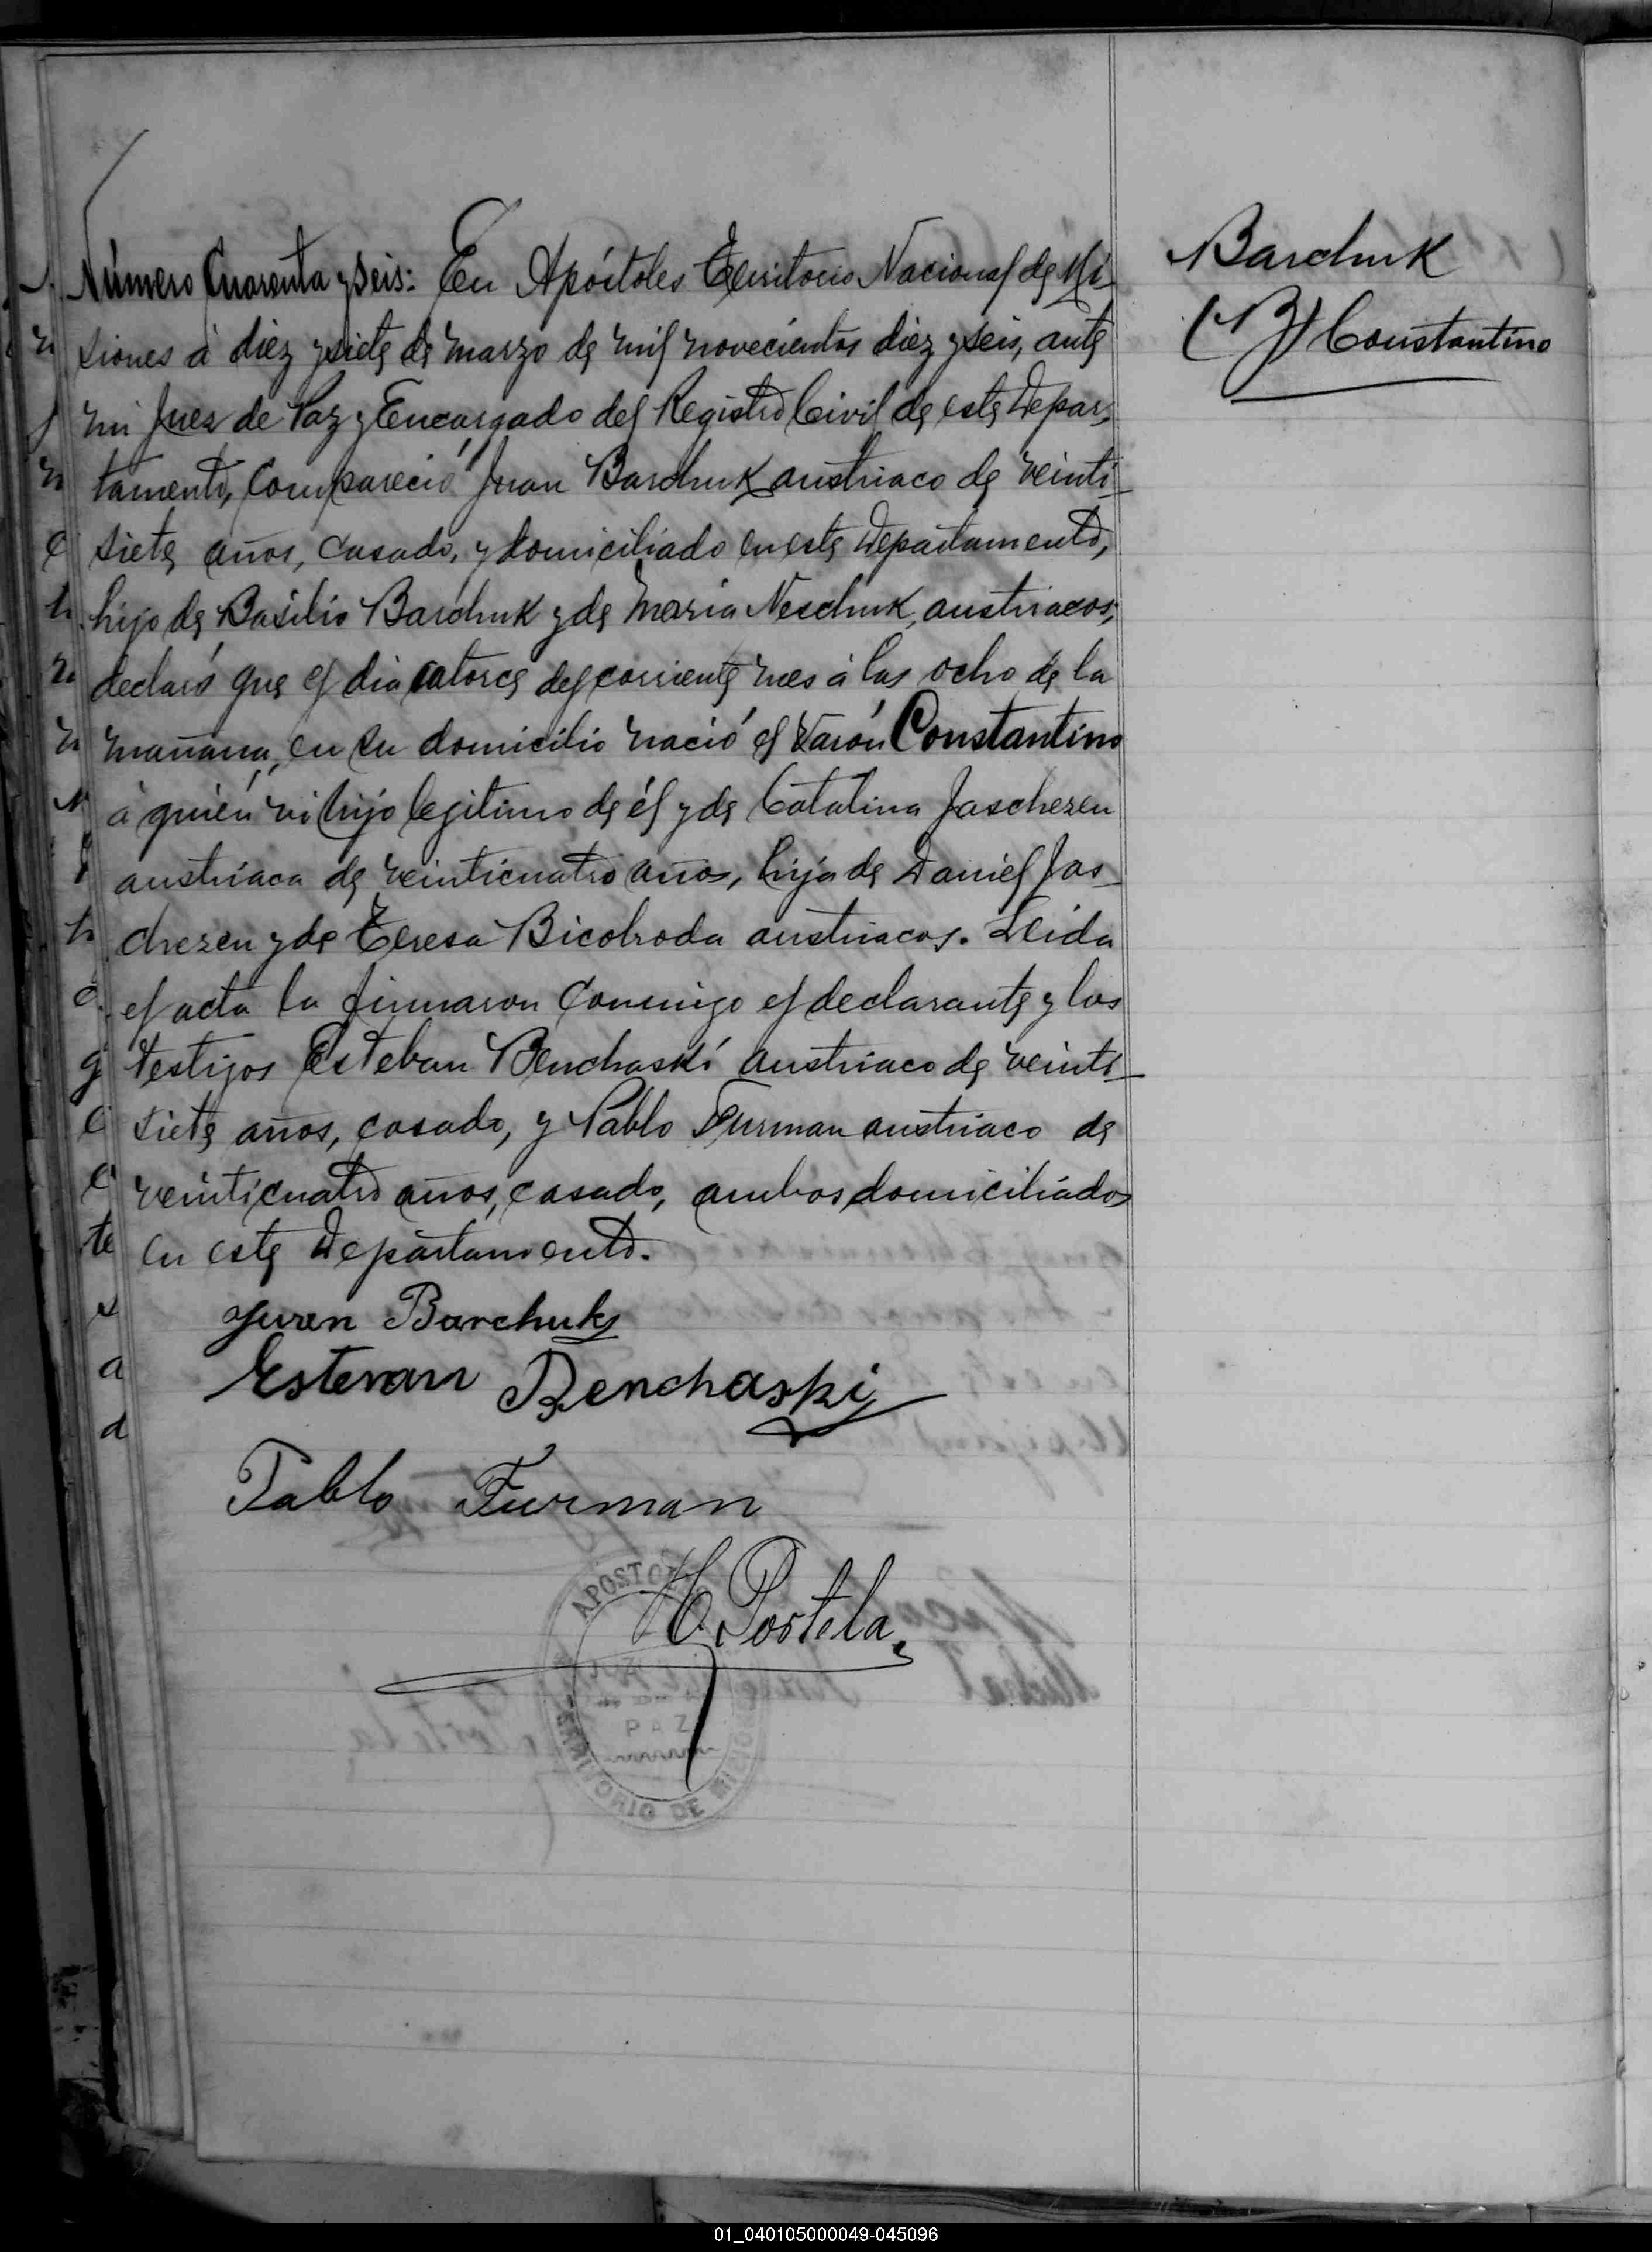 Número Cuarenta y seis: En Apóstoles Territorio Nacional de Mi-
siones á diez y siete de Marzo de mil novecientos diez y seis, ante
mi Juez de Paz y Encargado del Registro Civil de este Depar-
tamento, Compareció Juan Barchuk austriaco de veinti-
siete años, casado, y domiciliado en este Departamento,
hijo de Basilio Barchuk y de Maria Neschuk, austriacos;
declaró que el dia catorce del corriente mes á las ocho de la
mañana, en su domicilio nació el varón Constantino
á quién vi hijo legitimo de él y de Catalina Jaschezen
austriaca de veinticuatro años, hija de Daniel Jas-
chezen y de Teresa Bicobroda austriacos. Leida
el acta la firmaron Conmigo el declarante y los
testigos Esteban Benchaski austriaco de veinti-
siete años, casado, y Pablo Furman austriaco de
veinticuatro años, casado, ambos domiciliados
en este Departamento.
Juan Barchuk
Estevan Benchaski
Pablo Furman
Portela
APOSTOL
PAZ
TERRITORIO DE MISIONES
Barchuk
Constantino
01_040105000049-045096